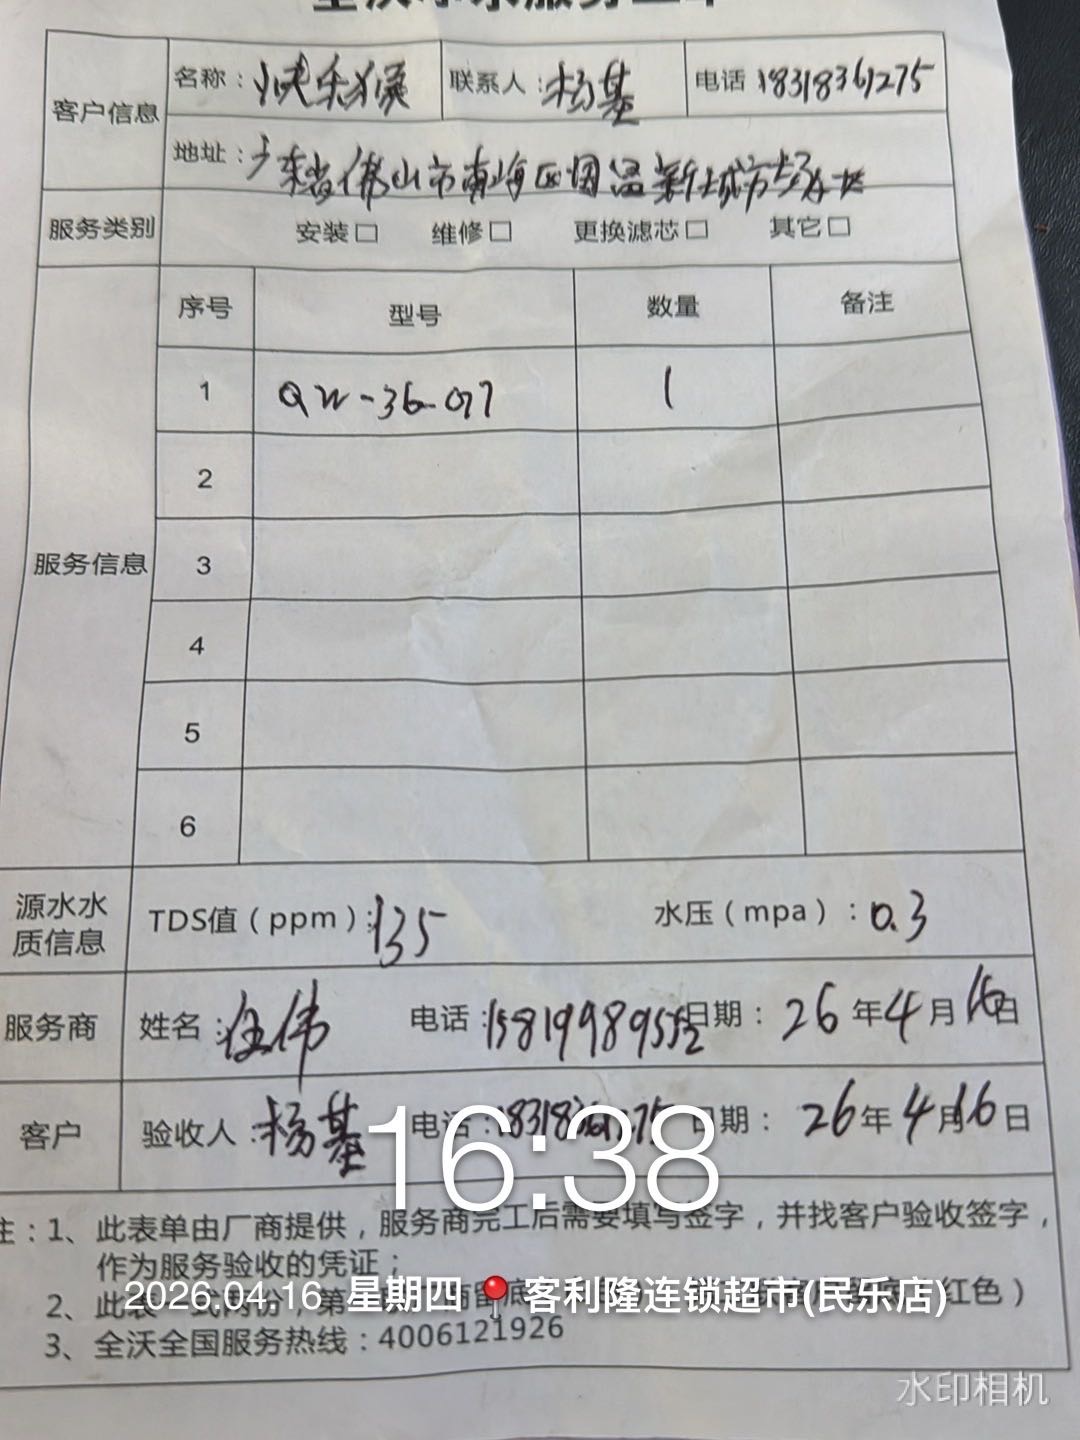 客户信息
名称：快乐猴 联系人：杨基 电话 18318361275
地址：广东省佛山市南海区
服务类别 安装□ 维修□ 更换滤芯□ 其它□
服务信息
序号 型号 数量 备注
1 QW-36-077 1
2
3
4
5
6
源水水质信息
TDS值（ppm）：135 水压（mpa）：0.3
服务商 姓名：任伟 电话： 日期：26年4月16日
客户 验收人：杨基 电话： 日期：26年4月16日
16:38
注：1、此表单由厂商提供，服务商完工后需要填写签字，并找客户验收签字，
作为服务验收的凭证；
2、此表一式两份，第 商留底 红色）
2026.04.16 星期四 客利隆连锁超市(民乐店)
3、全沃全国服务热线：4006121926
水印相机